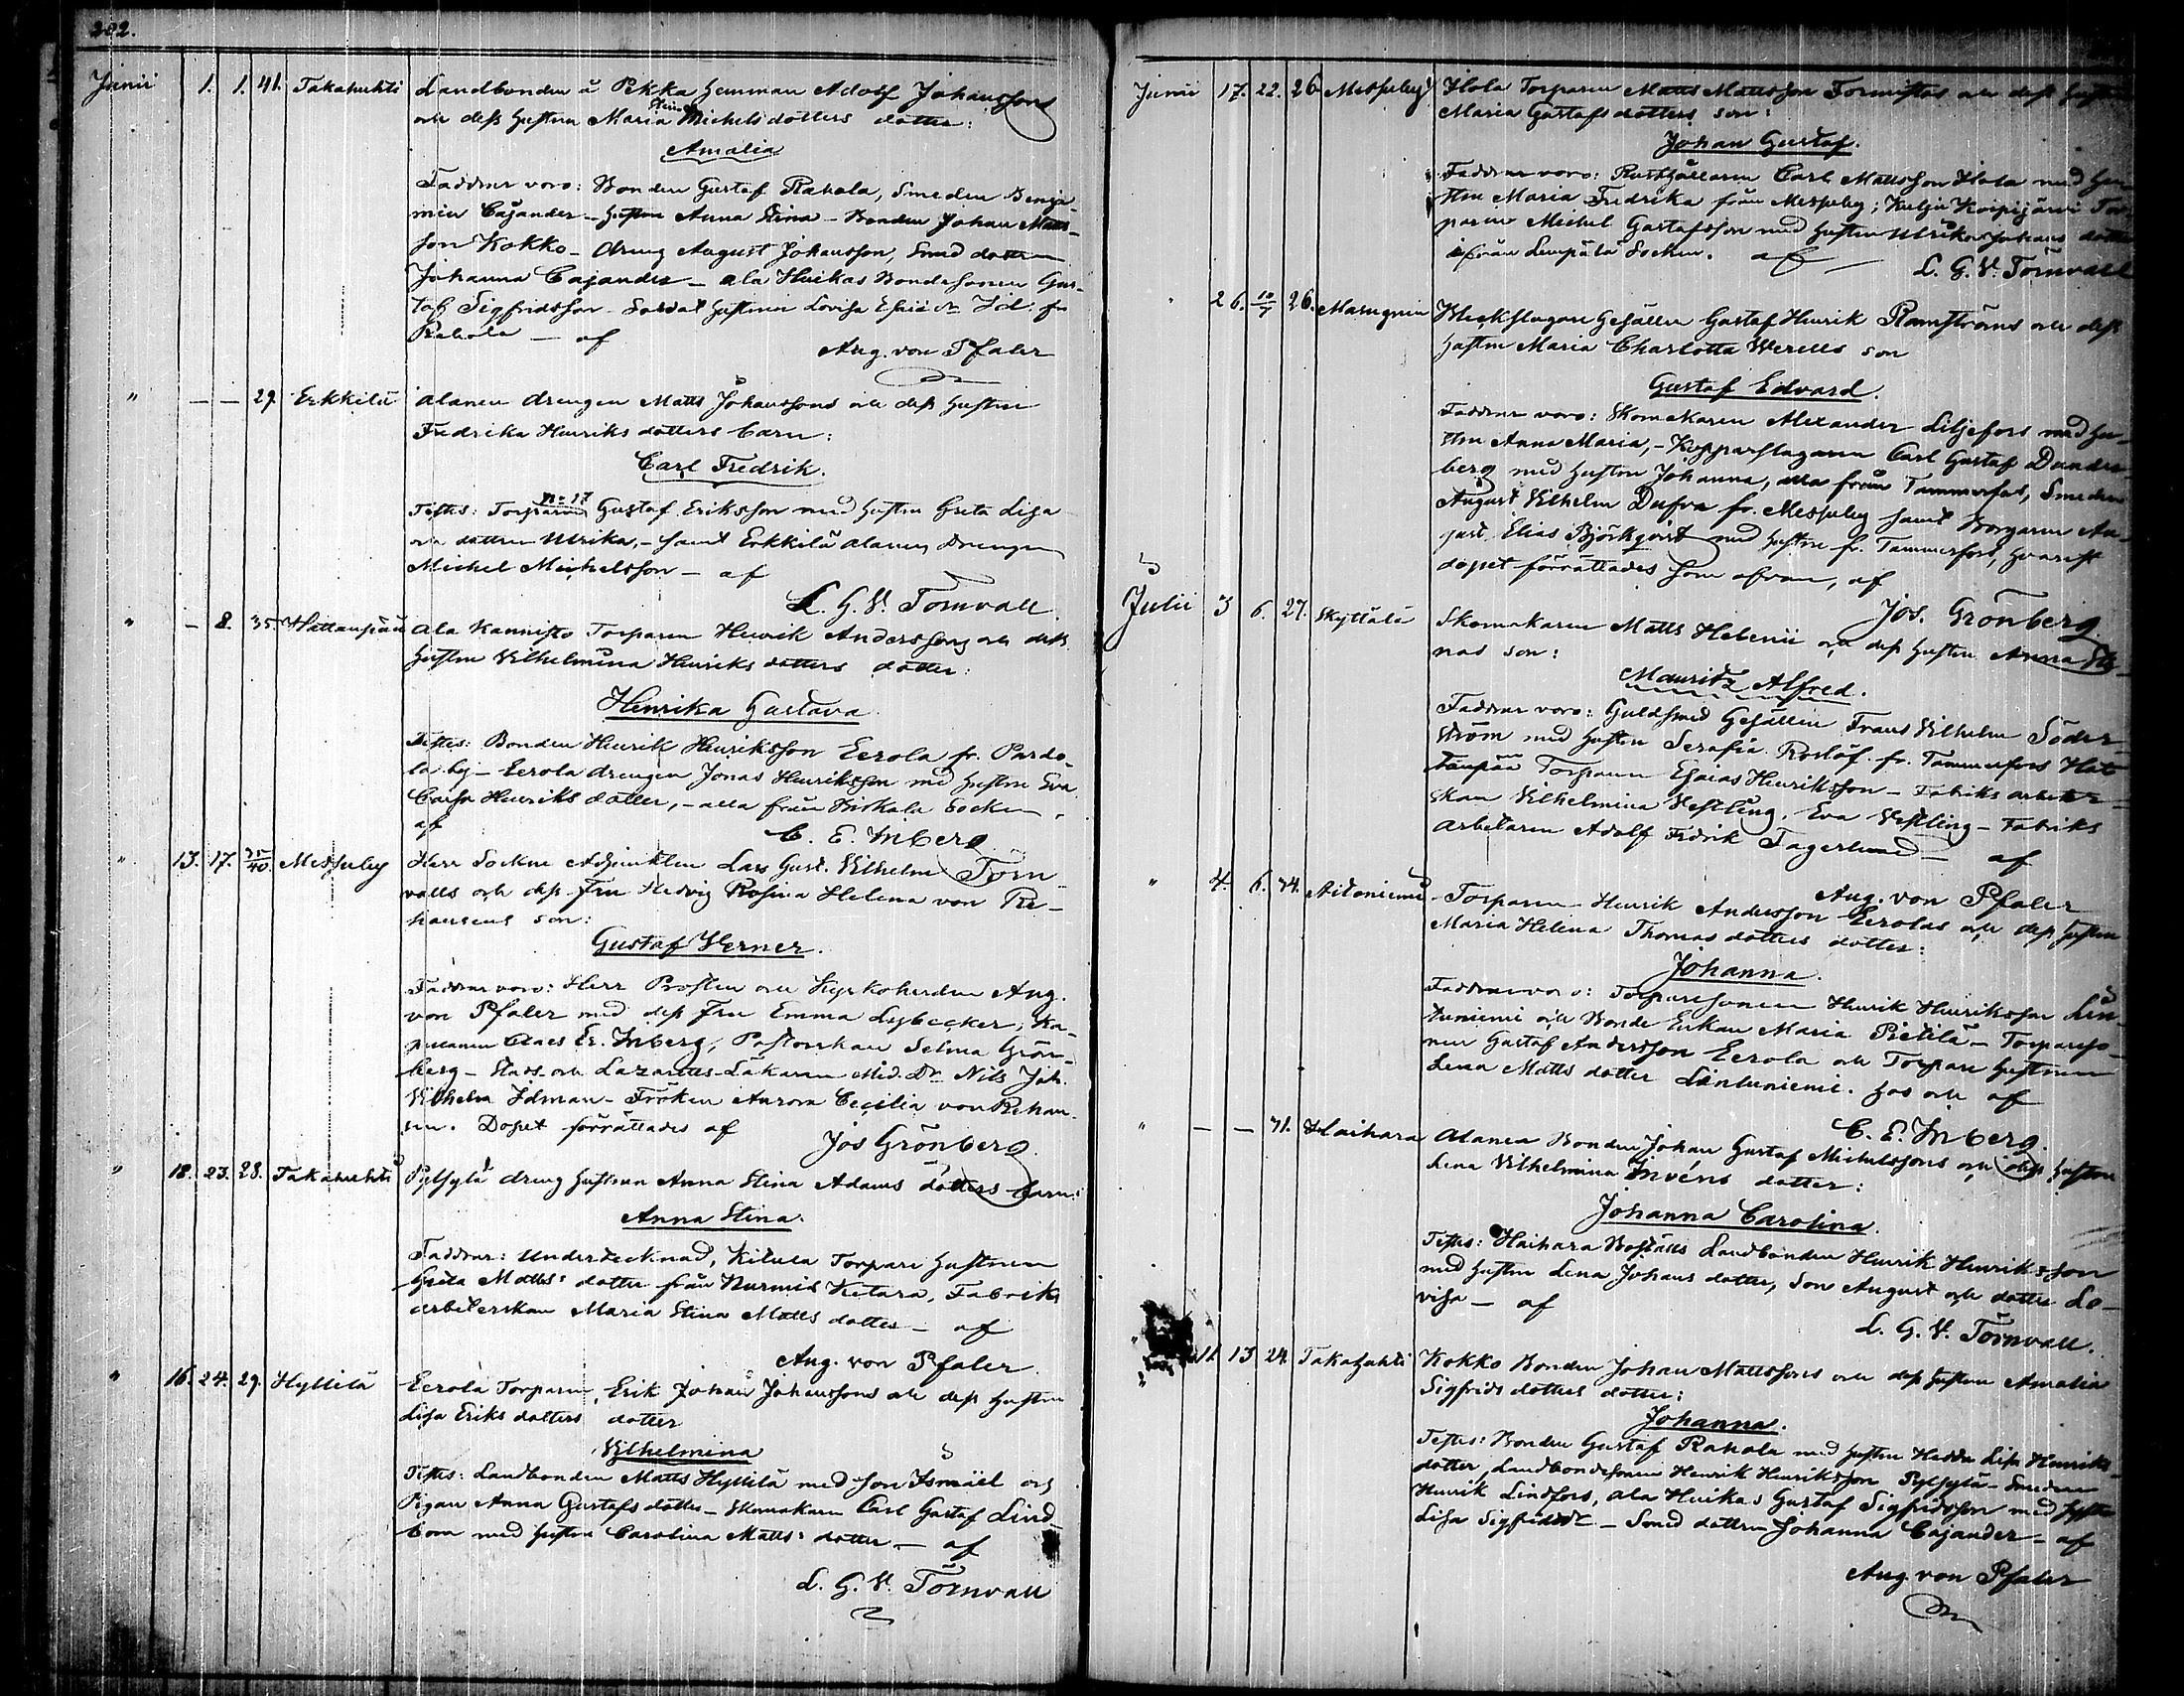 202.
Junii 1. 1. 41. Takahuhti Landbonden å Pekka hemman Adolf Johanssons
och dess hustru Maria Stina Michelsdotters dotter:
Amalia
Faddrar voro: Bonden Gustaf Rahola, Smeden Benja-
min Cajander - hustru Anna Stina - Bonden Johan Matts-
son Kokko - dreng August Johansson, Smed dottren
Johanna Cajander - ala Huikas Bondesonen Gus-
taf Sigfridsson - Soldat hustrun Lovisa fr
Rahola - af
Aug. von Pfaler
" — — 29. Erkkilä alanen drengen Matts Johanssons och dess hustru
Fredrika Henriks dotters barn:
Carl Fredrik.
Testes: Torparen Gustaf Eriksson med hustru Greta Lisa
och dottren Ulrika, - samt Erkkilä alanen Drengen
Michel Michelsson - af
L. G. V. Törnvall
" — 8. 35. Hattanpää ala Kannisto Torparen Henrik Anderssons och dess
hustru Vilhelmina Henriks dotters dotter:
Henrika Gustava
Testes: Bonden Henrik Henriksson Eerola fr. Pardo-
la by - Eerola drengen Jonas Henriksson med hustru Eva
Caisa Henriks dotter, - alla från Birkala Socken,
af
C. E. Inberg
" 13. 17. 35/40. Messuby Herr Sockne Adjunkten Lars Gust. Vilhelm Törn-
valls och dess Fru Hedvig Rosina Helena von Re-
hausens son:
Gustaf Verner.
Faddrar voro: Herr Prosten och Kyrkoherden Aug.
von Pfaler med dess Fru Emma Lybecker, Ka-
pellanen Claes Er. Inberg, Pastorskan Selma Grön-
berg - Stads- och Lazaretts-Läkaren Med. Dr. Nils Joh.
Vilhelm Idman - Fröken Aurora Cecilia von Rehau-
sen. Dopet förrättades af
Jos Grönberg
" 18. 23. 28. Takahuhti Pylsylä dreng hustrun Anna Stina Adams dotters barn:
Anna Stina.
Faddrar: Undertecknad, Kitula Torpare hustrun
Greta Matts dotter från Nurmis Ketara, Fabriks
arbeterskan Maria Stina Matts dotter - af
Aug. von Pfaler
" 16. 24. 29. Hyllilä Eerola Torparen, Erik Johan Johanssons och dess hustru
Lisa Eriks dotters dotter
Vilhelmina
Testes: Landbonden Matts Hyllilä med son Ismäel och
Pigan Anna Gustafs dotter - Skomakaren Carl Gustaf Lind-
bom med hustru Carolina Matts dotter - af
L. G. V. Törnvall
Junii 17. 22. 26 Messuby Hola Torparen Matts Mattsson Tormistos och dess hustru
Maria Gustafs dotters son:
Johan Gustaf.
Faddrar voro: Rusthållaren Carl Mattsson Hola med hu-
stru Maria Fredrika från Messuby; Kulju Koipijärvi Tor-
paren Michel Gustafsson med hustru Ulrika Johans dotter
ifrån Lempälä Socken. af — L. G. V. Törnvall
" 26. 10/7 26. Marugnin Bleckslagare Gesällen Gustaf Henrik Ramströms och dess
hustru Maria Charlotta Werells son
Gustaf Edvard.
Faddrar voro: Skomakaren Alexander Liljefors med hu-
stru Anna Maria, - Kopparslagaren Carl Gustaf Dander-
berg med hustru Johanna, alla från Tammerfors, Smeden
August Vilhelm Dufva fr. Messuby samt Borgaren Au-
gust Elias Björkqvist med hustru fr. Tammerfors, hvarest
dopet förrättades som ofvan, af
Jos. Grönberg
Julii 3 6. 27. Skyttälä Skomakaren Matts Helenii och dess hustru Anna Sti-
nas son:
Mauritz Alfred.
Faddrar voro: Guldsmed Gesällen Frans Vilhelm Söder-
ström med hustru Serafia Roslöf fr. Tammerfors Hat-
tanpää Torparen Esaias Henriksson - Fabriks arbeter-
skan Vilhelmina Vestling, Eva Vestling - Fabriks
arbetaren Adolf Fredrik Fagerlund - af
Aug. von Pfaler
" 4. 6. 34. Aitoniemi Torparen Henrik Andersson Eerolas och dess hustru
Maria Helena Thomas dotters dotter:
Johanna.
Faddrar voro: Torparesonen Henrik Henriksson Lin-
tuniemi och Bonde Enkan Maria Pietilä - Torpareso-
nen Gustaf Andersson Eerola och Torpare hustrun
Lena Matts dotter Lintuniemi. hos och af
C. E. Inberg.
" — — 31. Haihara Alanen Bonden Johan Gustaf Michelssons och dess hustru
Lena Vilhelmina Invéns dotter:
Johanna Carolina.
Testes: Haihara Boställs Landbonden Henrik Henriksson
med hustru Lena Johans dotter, Son August och dotter Lo-
visa - af
L. G. V. Törnvall.
" 11 13 24. Takahuhti Kokko Bonden Johan Mattssons och dess hustru Amalia
Sigfrids dotters dotter:
Johanna.
Testes: Bonden Gustaf Rahola med hustru Hedda Lisa Henriks
dotter, Landbondesonen Henrik Henriksson Pylsylä - Smeden
Henrik Lindfors, ala Huikas Gustaf Sigfridsson med hustru
Lisa Sigfridsdr - Smed dottren Johanna Cajander - af
Aug. von Pfaler